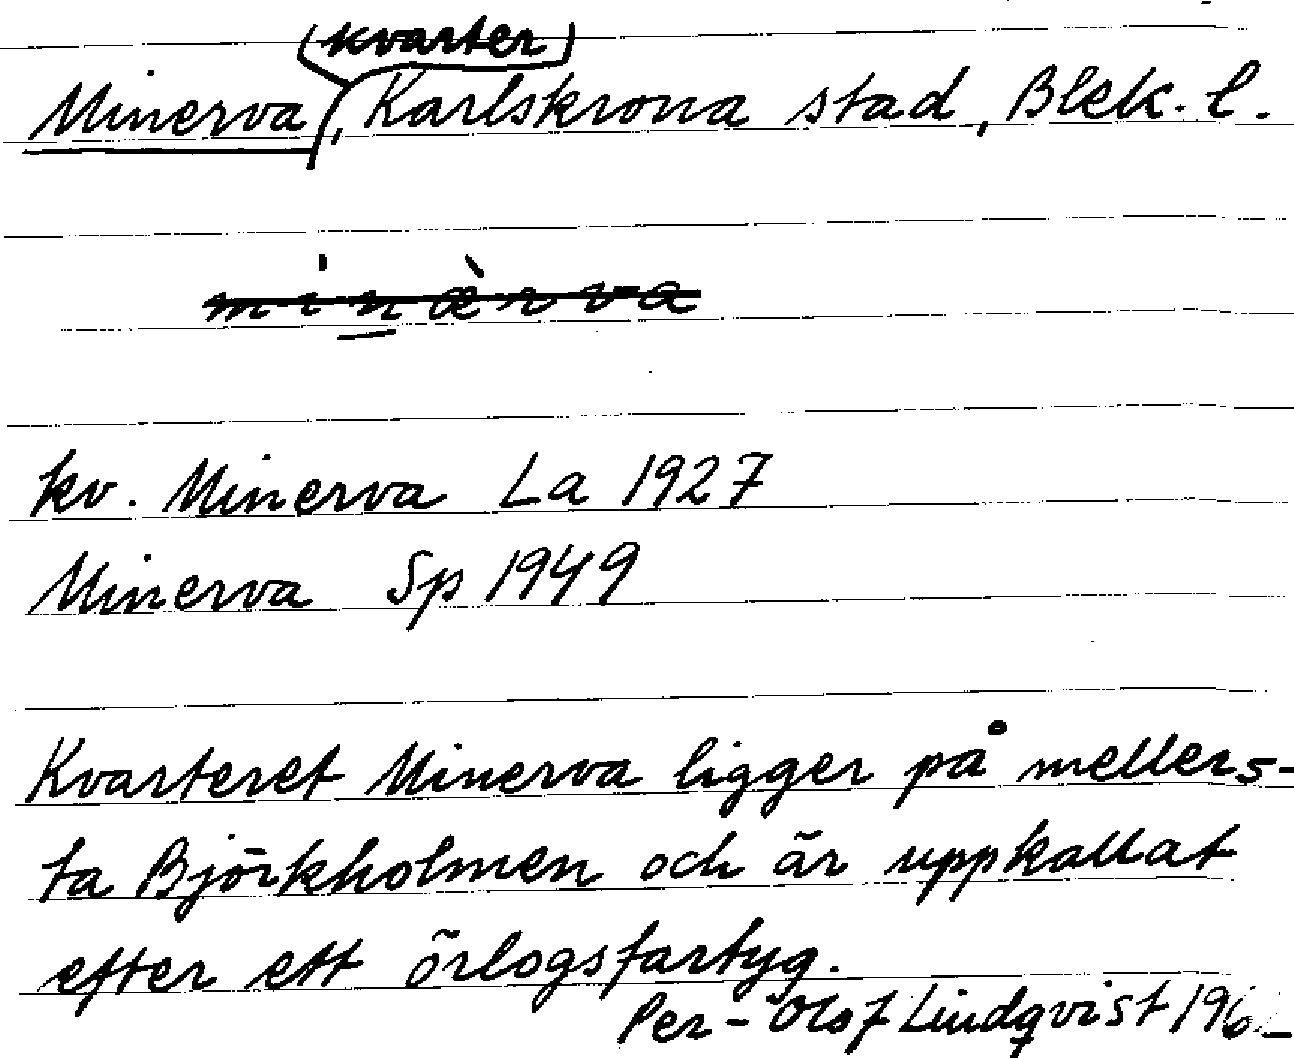 (kvarter)
Minerva, Karlskrona stad, Blek. l.
minærva
kv. Minerva La 1927
Minerva Sp 1949
Kvarteret Minerva ligger på mellers-
ta Björkholmen och är uppkallat
efter ett örlogsfartyg.
Per-Olof Lindqvist